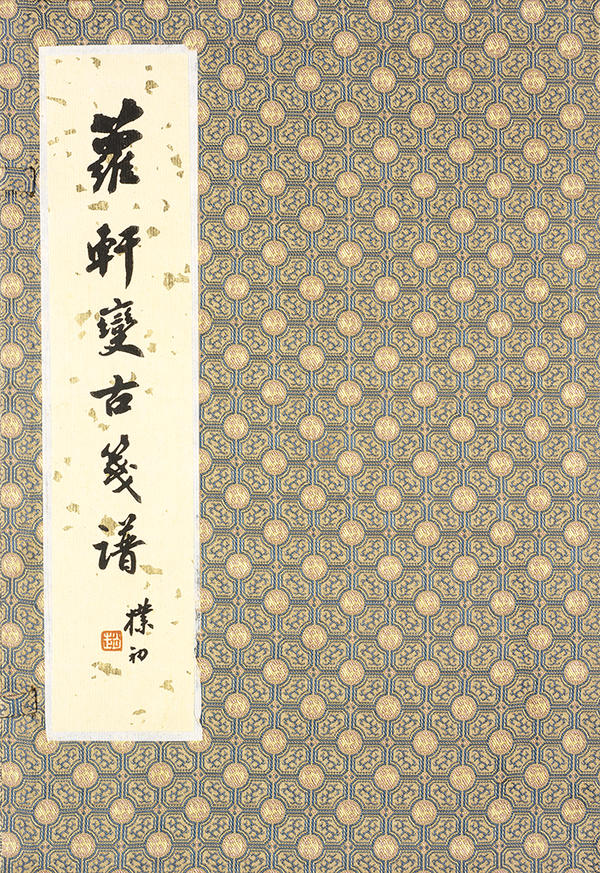 蘿軒變古箋譜
樸初
趙